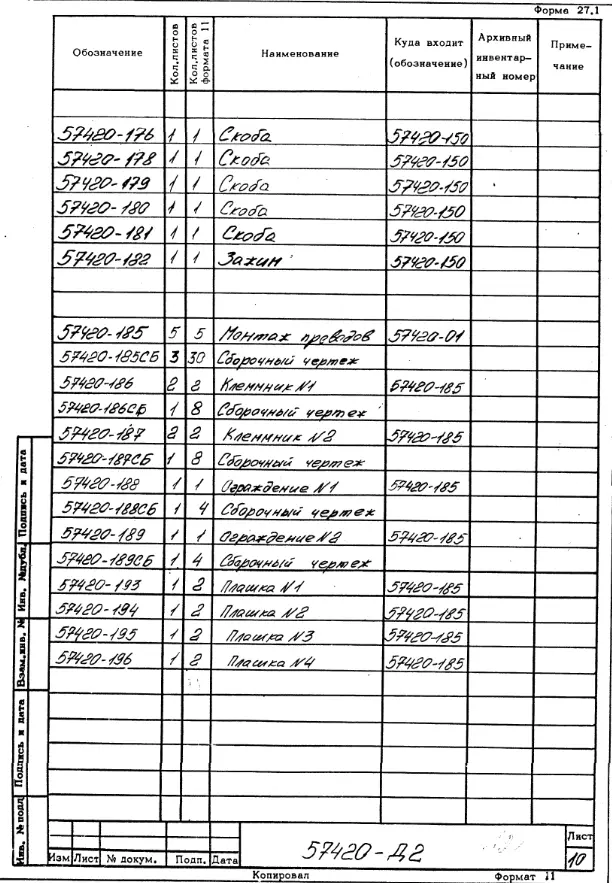 Форма 27.1
Обозначение Кол.листов Кол.листов формата 11 Наименование Куда входит (обозначение) Архивный инвентарный номер Примечание
57420-176 1 1 Скоба 57420-150
57420-178 1 1 Скоба 57420-150
57420-179 1 1 Скоба 57420-150
57420-180 1 1 Скоба 57420-150
57420-181 1 1 Скоба 57420-150
57420-182 1 1 Зажим 57420-150
57420-185 5 5 Монтаж проводов 57420-01
57420-185СБ 3 30 Сборочный чертеж
57420-186 2 2 Клеммник №1 57420-185
57420-186СБ 1 8 Сборочный чертеж
57420-187 2 2 Клеммник №2 57420-185
57420-187СБ 1 8 Сборочный чертеж
57420-188 1 1 Ограждение №1 57420-185
57420-188СБ 1 4 Сборочный чертеж
57420-189 1 1 Ограждение №2 57420-185
57420-189СБ 1 4 Сборочный чертеж
57420-193 1 2 Плашка №1 57420-185
57420-194 1 2 Плашка №2 57420-185
57420-195 1 2 Плашка №3 57420-185
57420-196 1 2 Плашка №4 57420-185
Подпись и дата
Инв. №дубл.
Взам.инв. №
Подпись и дата
Инв. №подл
Изм Лист № докум. Подп. Дата
57420-Д2
Лист
10
Копировал Формат 11